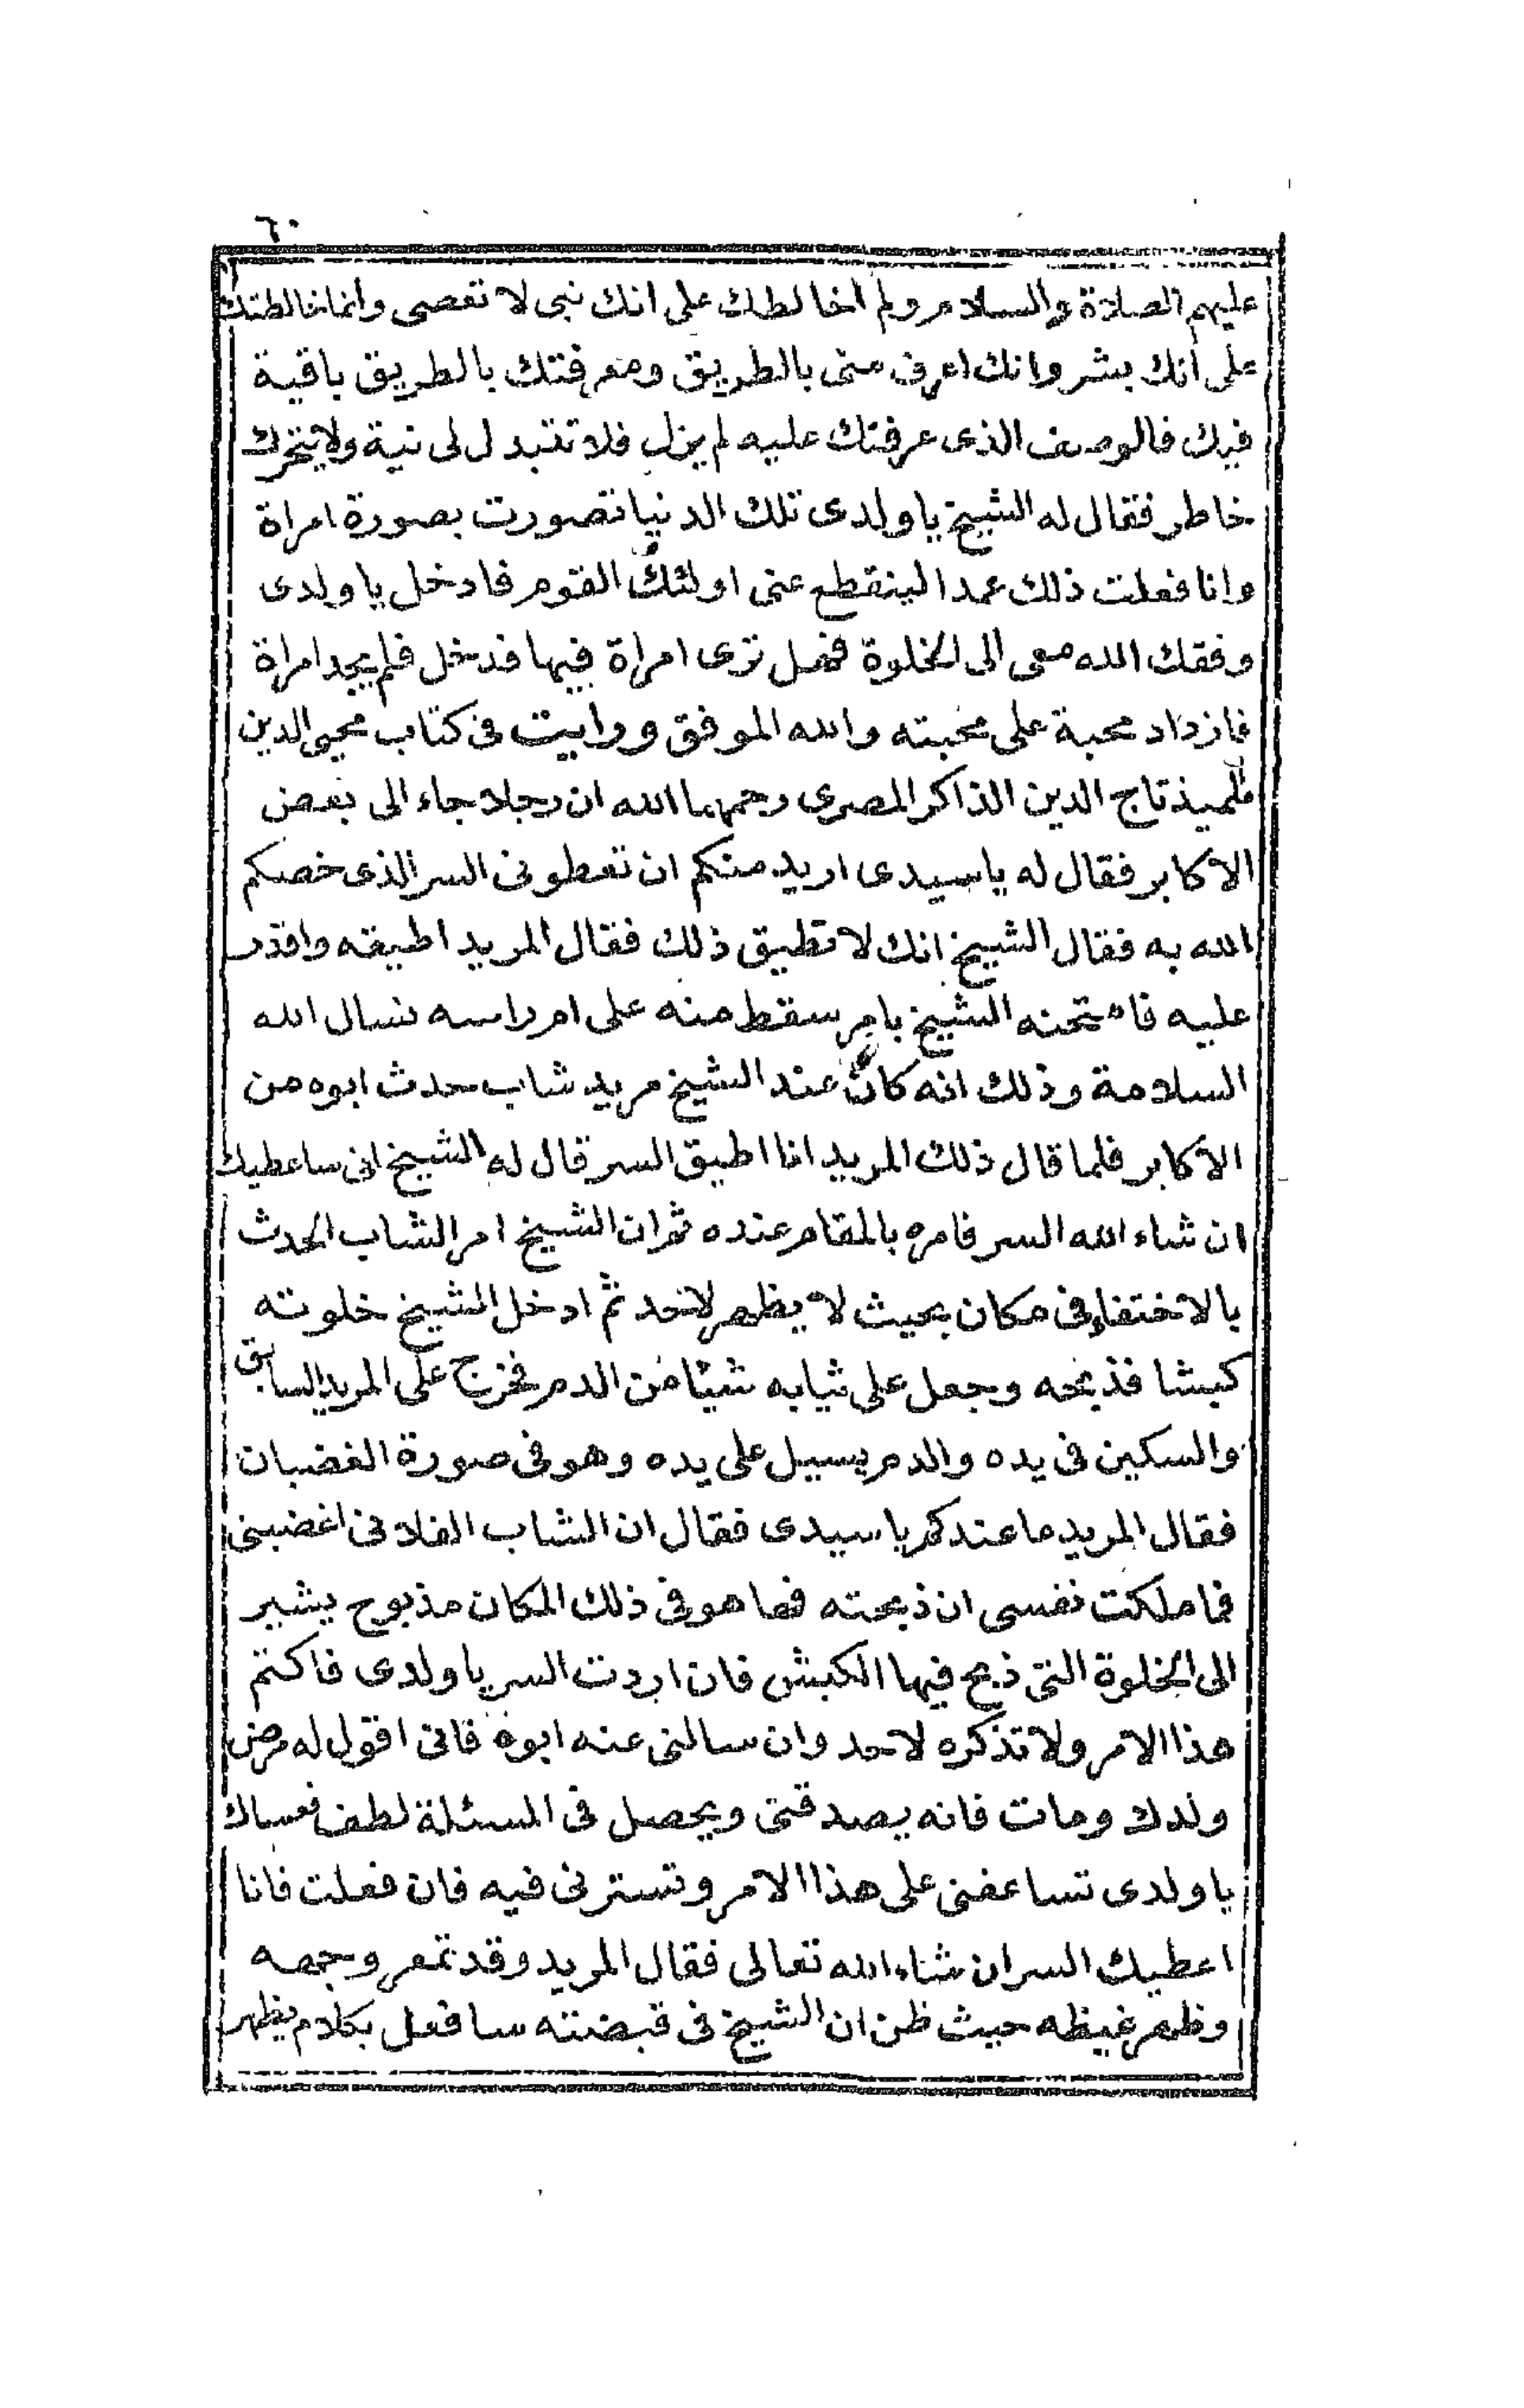 ٦٠
عليهم الصلاة والسلام ولم اخالطك على انك نبى لا تعصى وانما خالطتك
على انك بشر وانك اعرف منى بالطريق ومعرفتك بالطريق باقية
فيك فالوصف الذى عرفتك عليه لم يزل فلا تتبدل لى نية ولا يتحرك
خاطر فقال له الشيخ يا ولدى تلك الدنيا تصورت بصورة امراة
وانا فعلت ذلك عمدا لينقطع عنى اولئك القوم فادخل يا ولدى
وفقك الله معى الى الخلوة فهل ترى امراة فيها فدخل فلم يجد امراة
فازداد محبة على محبته والله الموفق ورايت فى كتاب محيى الدين
تلميذ تاج الدين الذاكر المصرى رحمهما الله ان رجلا جاء الى بعض
الاكابر فقال له يا سيدى اريد منكم ان تعطونى السر الذى خصكم
الله به فقال الشيخ انك لا تطيق ذلك فقال المريد اطيقه واقدر
عليه فامتحنه الشيخ بامر سقط منه على ام راسه نسال الله
السلامة وذلك انه كان عند الشيخ مريد شاب حدث ابوه من
الاكابر فلما قال ذلك المريد انا اطيق السر قال له الشيخ انى ساعطيك
ان شاء الله السر فامره بالمقام عنده ثم ان الشيخ امر الشاب الحدث
بالاختفاء فى مكان بحيث لا يظهر لاحد ثم ادخل الشيخ خلوته
كبشا فذبحه وجعل على ثيابه شيئا من الدم فخرج على المريد السابق
والسكين فى يده والدم يسيل على يده وهو فى صورة الغضبان
فقال المريد ما عندكم يا سيدى فقال ان الشاب الفلانى اغضبنى
فما ملكت نفسى ان ذبحته فها هو فى ذلك المكان مذبوح يشير
الى الخلوة التى ذبح فيها الكبش فان اردت السر يا ولدى فاكتم
هذا الامر ولا تذكره لاحد وان سالنى عنه ابوه فانى اقول له مرض
ولدك ومات فانه يصدقنى ويحصل فى المسئلة لطف فعساك
يا ولدى تساعفنى على هذا الامر وتسترنى فيه فان فعلت فانا
اعطيك السر ان شاء الله تعالى فقال المريد وقد تمعر وجهه
وظهر غيظه حيث ظن ان الشيخ فى قبضته سافعل بكلام يظهر